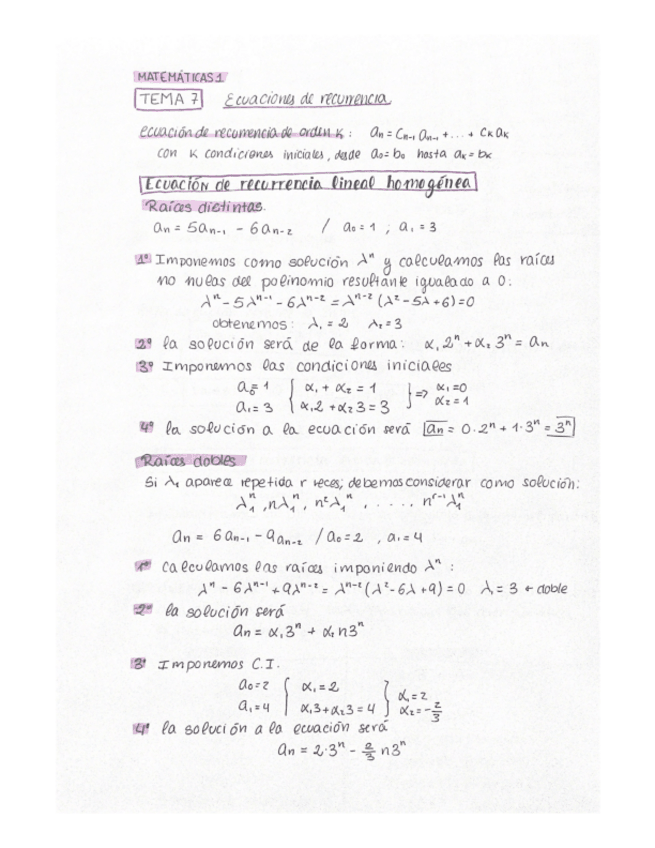 MATEMÁTICAS 1
TEMA 7 Ecuaciones de recurrencia
ecuación de recurrencia de orden K: an = Cn-1 an-1 + ... + Ck ak
con K condiciones iniciales, desde a0 = b0 hasta ak = bk
Ecuación de recurrencia lineal homogénea
Raíces distintas.
an = 5an-1 - 6an-2 / a0 = 1 ; a1 = 3
1º Imponemos como solución λⁿ y calculamos las raíces
no nulas del polinomio resultante igualado a 0:
λⁿ - 5λⁿ⁻¹ - 6λⁿ⁻² = λⁿ⁻² (λ² - 5λ + 6) = 0
obtenemos: λ1 = 2 λ2 = 3
2º la solución será de la forma: α1 2ⁿ + α2 3ⁿ = an
3º Imponemos las condiciones iniciales
a0 = 1 { α1 + α2 = 1 } => α1 = 0
a1 = 3 { α1 2 + α2 3 = 3 } α2 = 1
4º la solución a la ecuación será an = 0·2ⁿ + 1·3ⁿ = 3ⁿ
Raíces dobles
Si λ1 aparece repetida r veces, debemos considerar como solución:
λ1ⁿ, nλ1ⁿ, n²λ1ⁿ, ....., nʳ⁻¹λ1ⁿ
an = 6an-1 - 9an-2 / a0 = 2 , a1 = 4
1º calculamos las raíces imponiendo λⁿ :
λⁿ - 6λⁿ⁻¹ + 9λⁿ⁻² = λⁿ⁻² (λ² - 6λ + 9) = 0 λ1 = 3 ← doble
2º la solución será
an = α1 3ⁿ + α2 n3ⁿ
3º Imponemos C.I.
a0 = 2 { α1 = 2 } α1 = 2
a1 = 4 { α1 3 + α2 3 = 4 } α2 = -2/3
4º la solución a la ecuación será
an = 2·3ⁿ - 2/3 n3ⁿ